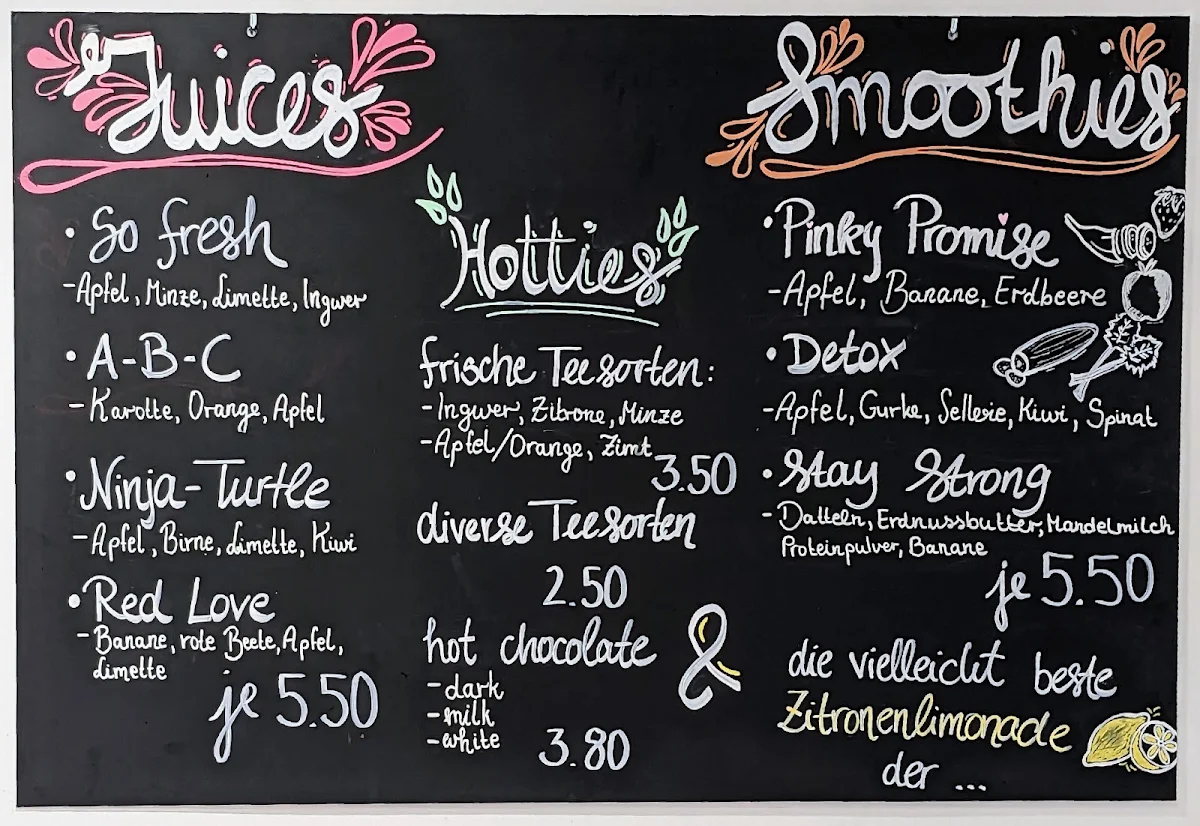 Juices
• So fresh
-Apfel, Minze, Limette, Ingwer
• A-B-C
- Karotte, Orange, Apfel
• Ninja-Turtle
- Apfel, Birne, Limette, Kiwi
• Red Love
- Banane, rote Beete, Apfel,
Limette
je 5.50
Hotties
frische Teesorten:
- Ingwer, Zitrone, Minze
- Apfel/Orange, Zimt
3.50
diverse Teesorten
2.50
hot chocolate
- dark
- milk
- white
3.80
Smoothies
• Pinky Promise
- Apfel, Banane, Erdbeere
• Detox
- Apfel, Gurke, Sellerie, Kiwi, Spinat
• Stay Strong
- Datteln, Erdnussbutter, Mandelmilch
Proteinpulver, Banane
je 5.50
die vielleicht beste
Zitronenlimonade
der ...